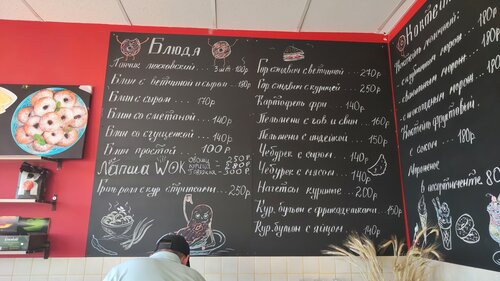 Блюда
Пончик московский 3шт-180р
Блин с ветчиной и сыром -180р
Блин с сыром. 170р
Блин со сметаной. 140р
Блин со сгущеткой. 140р
Блин простой. 100р
Лапша WOK овощи 250р.
курица - 280р
говядина - 300р.
Гриль ролл с кур. стрипсами. 250р.
Гор. сэндвич с ветчиной - 270р
Гор. сэндвич с курицей. 250р
Картофель фри. 140р.
Пельмени с гов. и свин. 160р
Пельмени с индейкой. 150р
Чебурек с сыром. 140р
Чебурек с мясом. 140р
Наггетсы куриные. 200р
Кур. бульон с фрикадельками. 150р
Кур. бульон с яйцом. 140р
Коктейли
180р
180р
180р
- с шоколадным морож. 180р
Коктейль фруктовый
с соком. 180р
Мороженое
в ассортименте 80